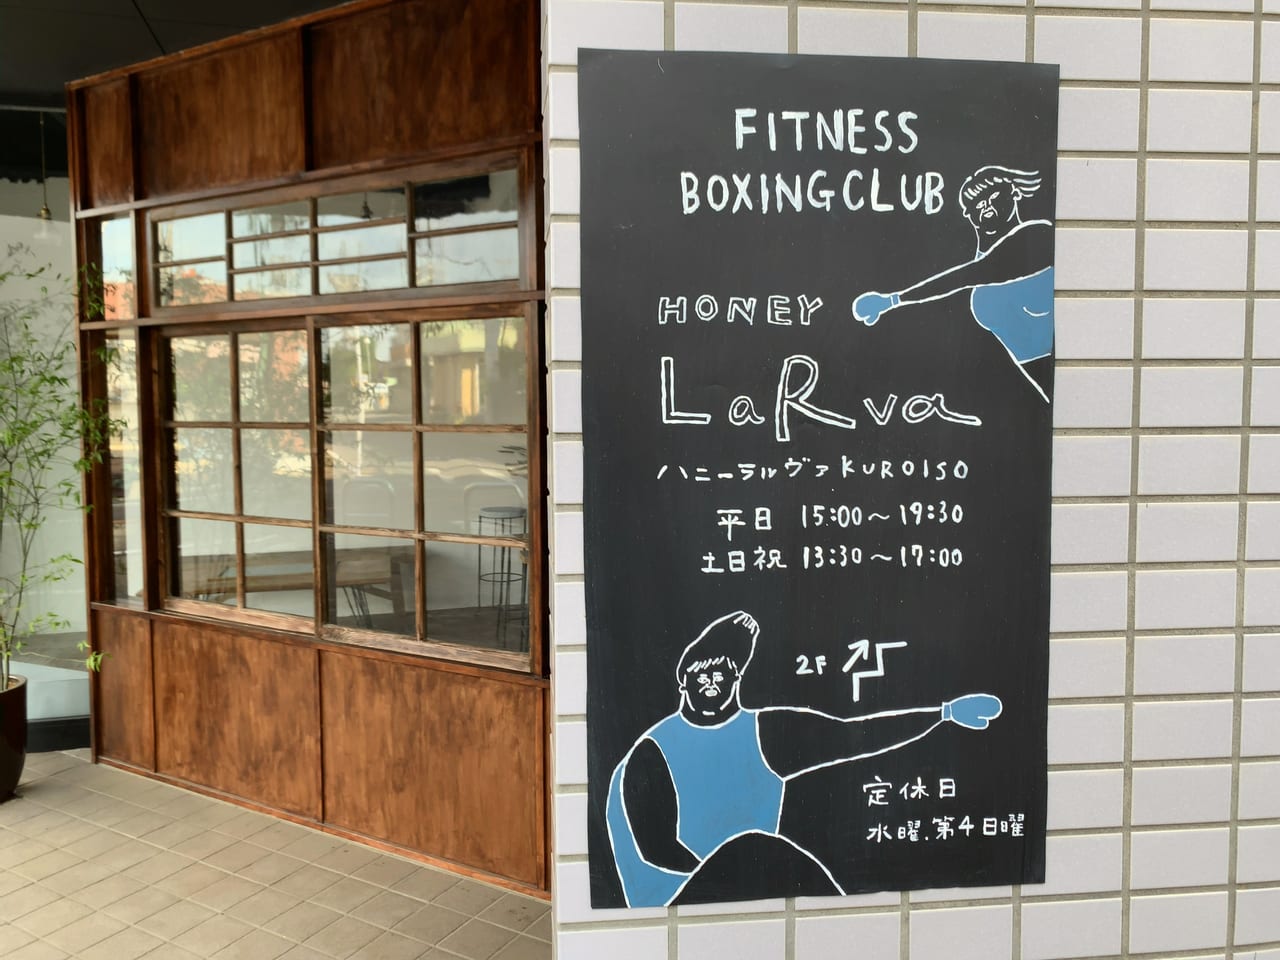 FITNESS
BOXING CLUB
HONEY
LaRva
ハニーラルヴァ KUROISO
平日 15:00〜19:30
土日祝 13:30〜17:00
2F
定休日
水曜.第4日曜